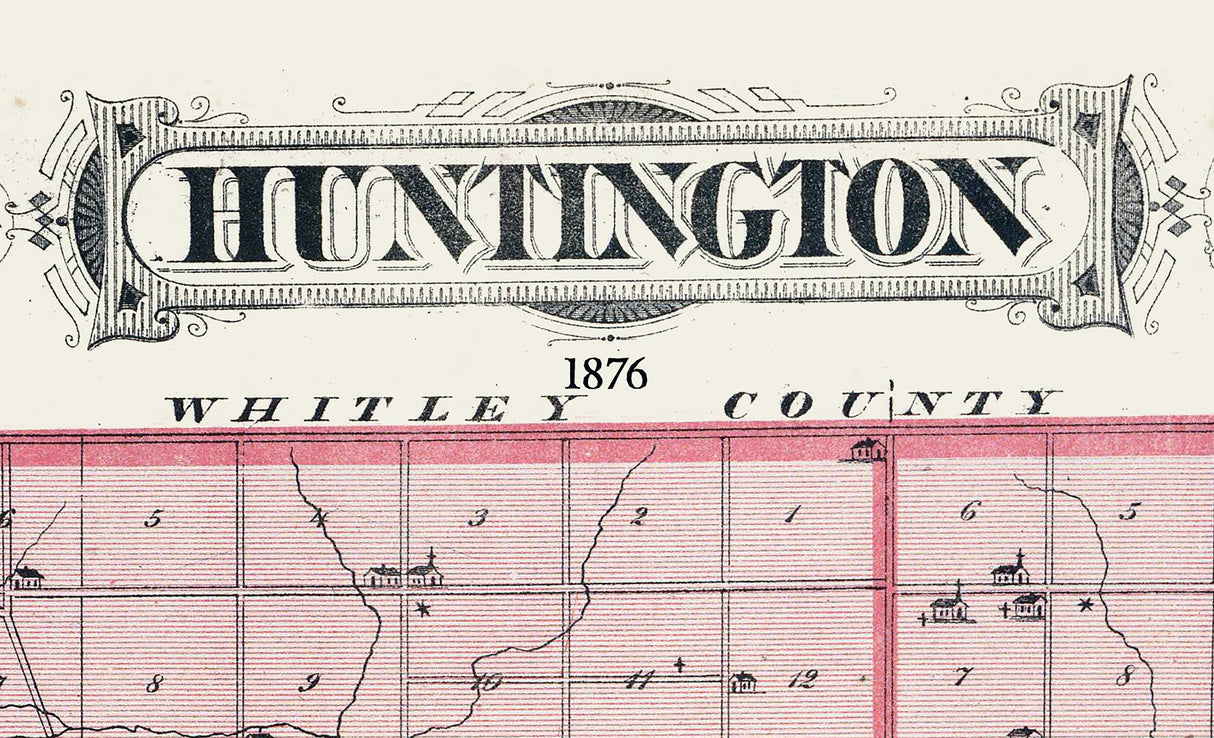 HUNTINGTON
1876
WHITLEY COUNTY
6 5 4 3 2 1 6 5
7 8 9 10 11 12 7 8